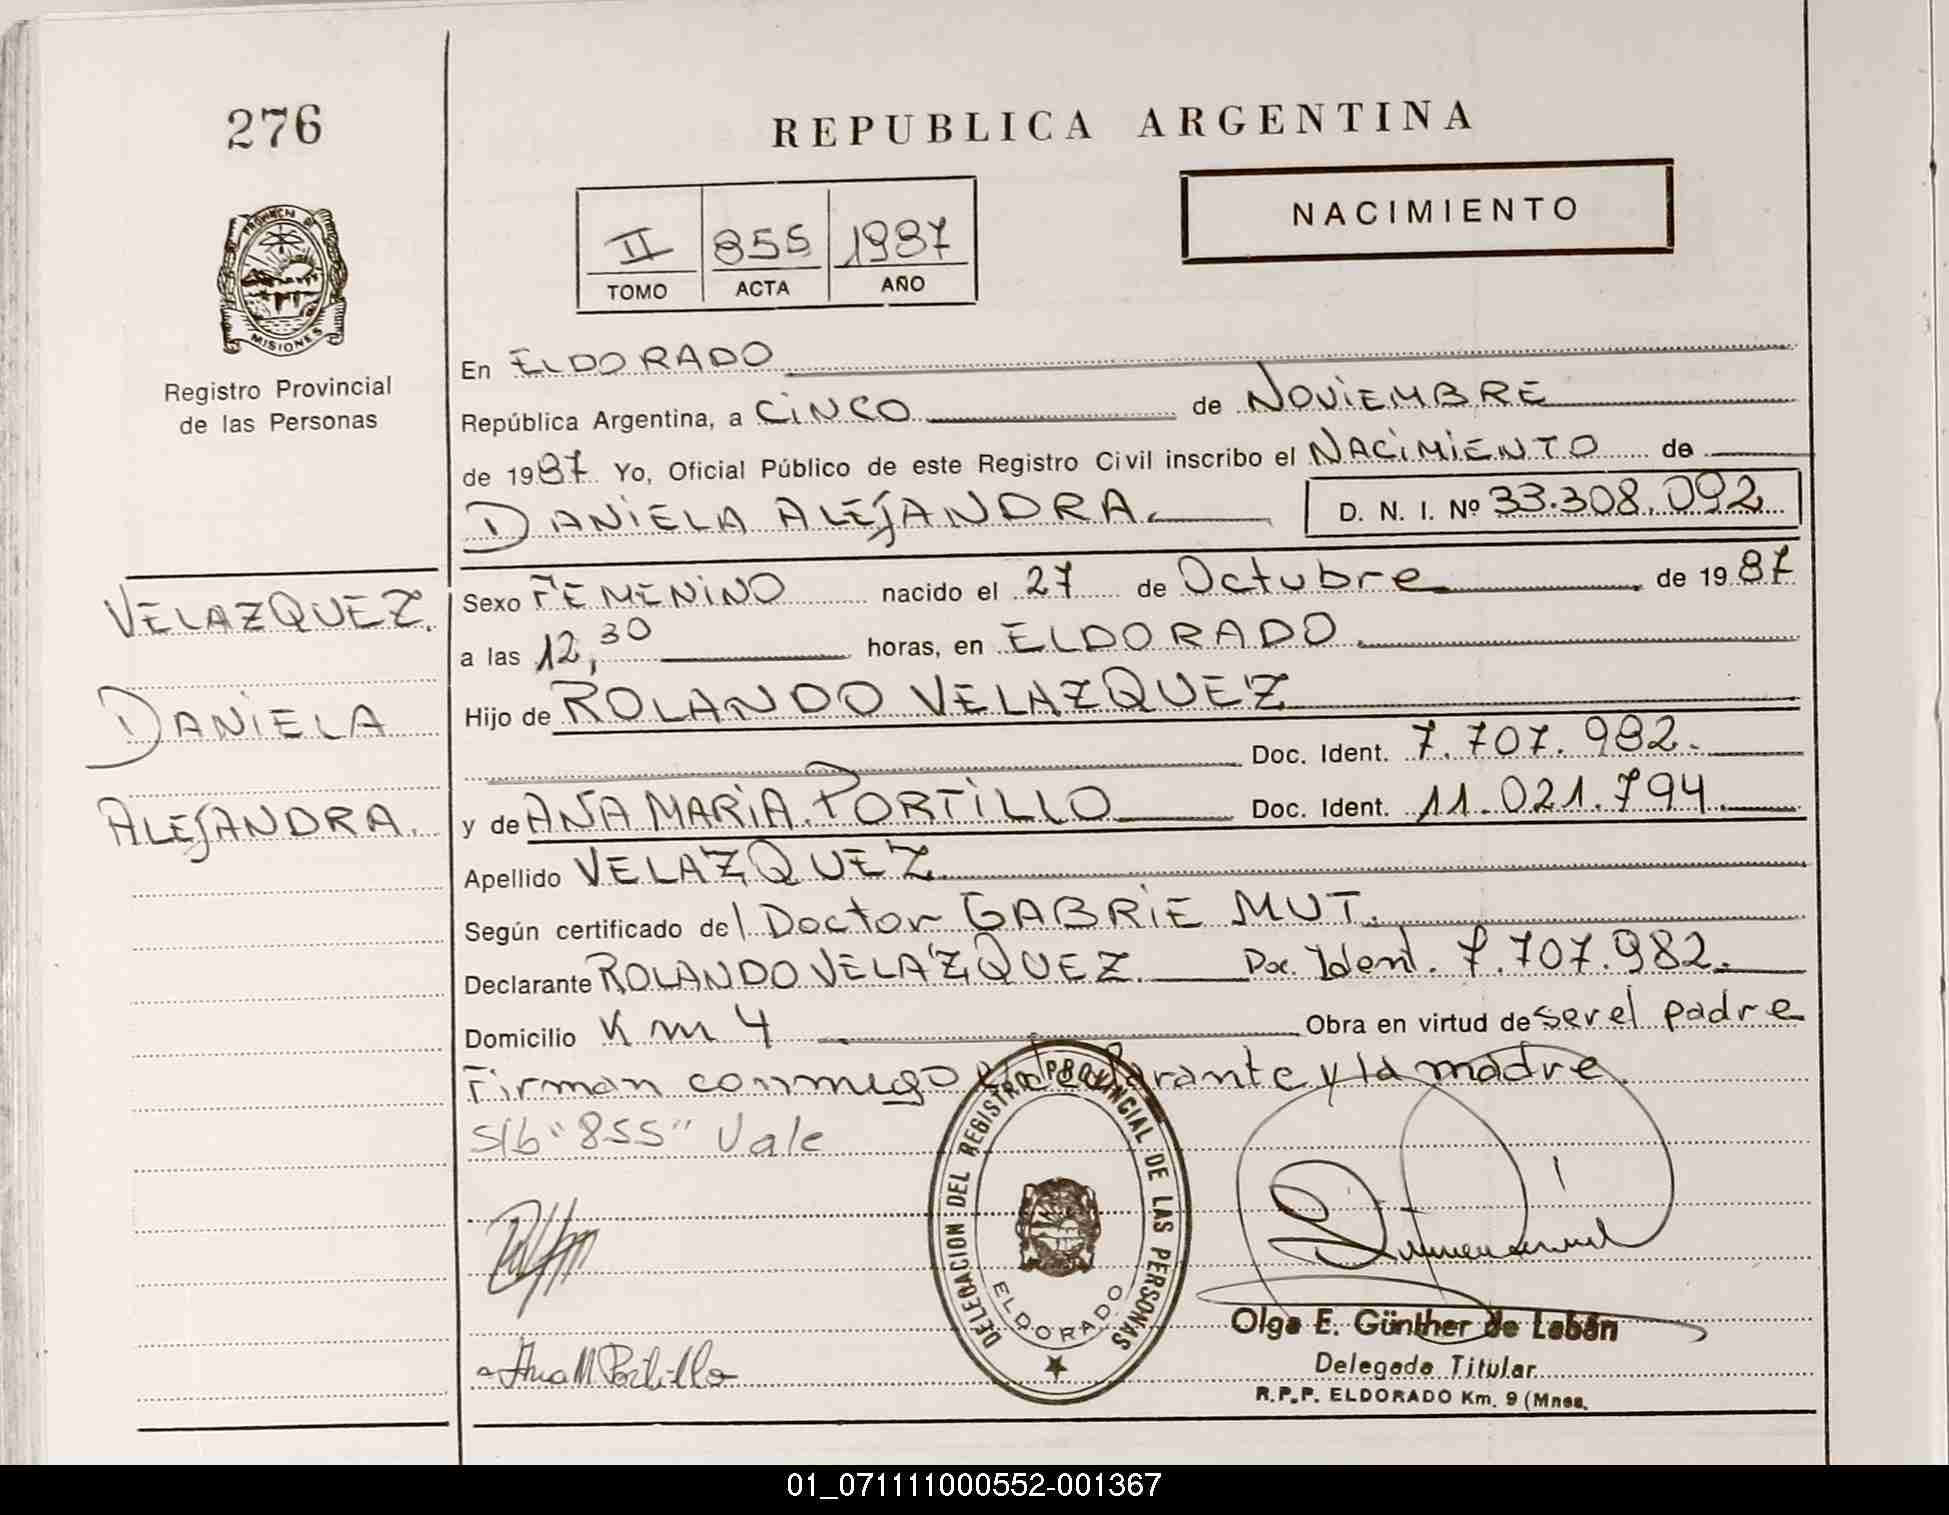 276
REPUBLICA ARGENTINA
NACIMIENTO
II 855 1987
TOMO ACTA AÑO
PROVINCIA DE
MISIONES
Registro Provincial
de las Personas
En ELDORADO
República Argentina, a CINCO de NOVIEMBRE
de 1987 Yo, Oficial Público de este Registro Civil inscribo el NACIMIENTO de
DANIELA ALEJANDRA. D. N. I. Nº 33.308.092
VELAZQUEZ.
DANIELA
ALEJANDRA.
Sexo FEMENINO nacido el 27 de Octubre de 1987
a las 12,30 horas, en ELDORADO
Hijo de ROLANDO VELAZQUEZ
Doc. Ident. 7.707.982.
y de ANA MARIA PORTILLO Doc. Ident. 11.021.794
Apellido VELAZQUEZ
Según certificado del Doctor GABRIE MUT.
Declarante ROLANDO VELAZQUEZ Doc. Ident. 7.707.982.
Domicilio Km 4 Obra en virtud de ser el padre
Firman conmigo el declarante y la madre.
S/b "855" Vale
DELEGACION DEL REGISTRO PROVINCIAL DE LAS PERSONAS
ELDORADO
Ana M Portillo
Olga E. Günther de Labán
Delegada Titular
R.P.P. ELDORADO Km. 9 (Mnes.
01_071111000552-001367